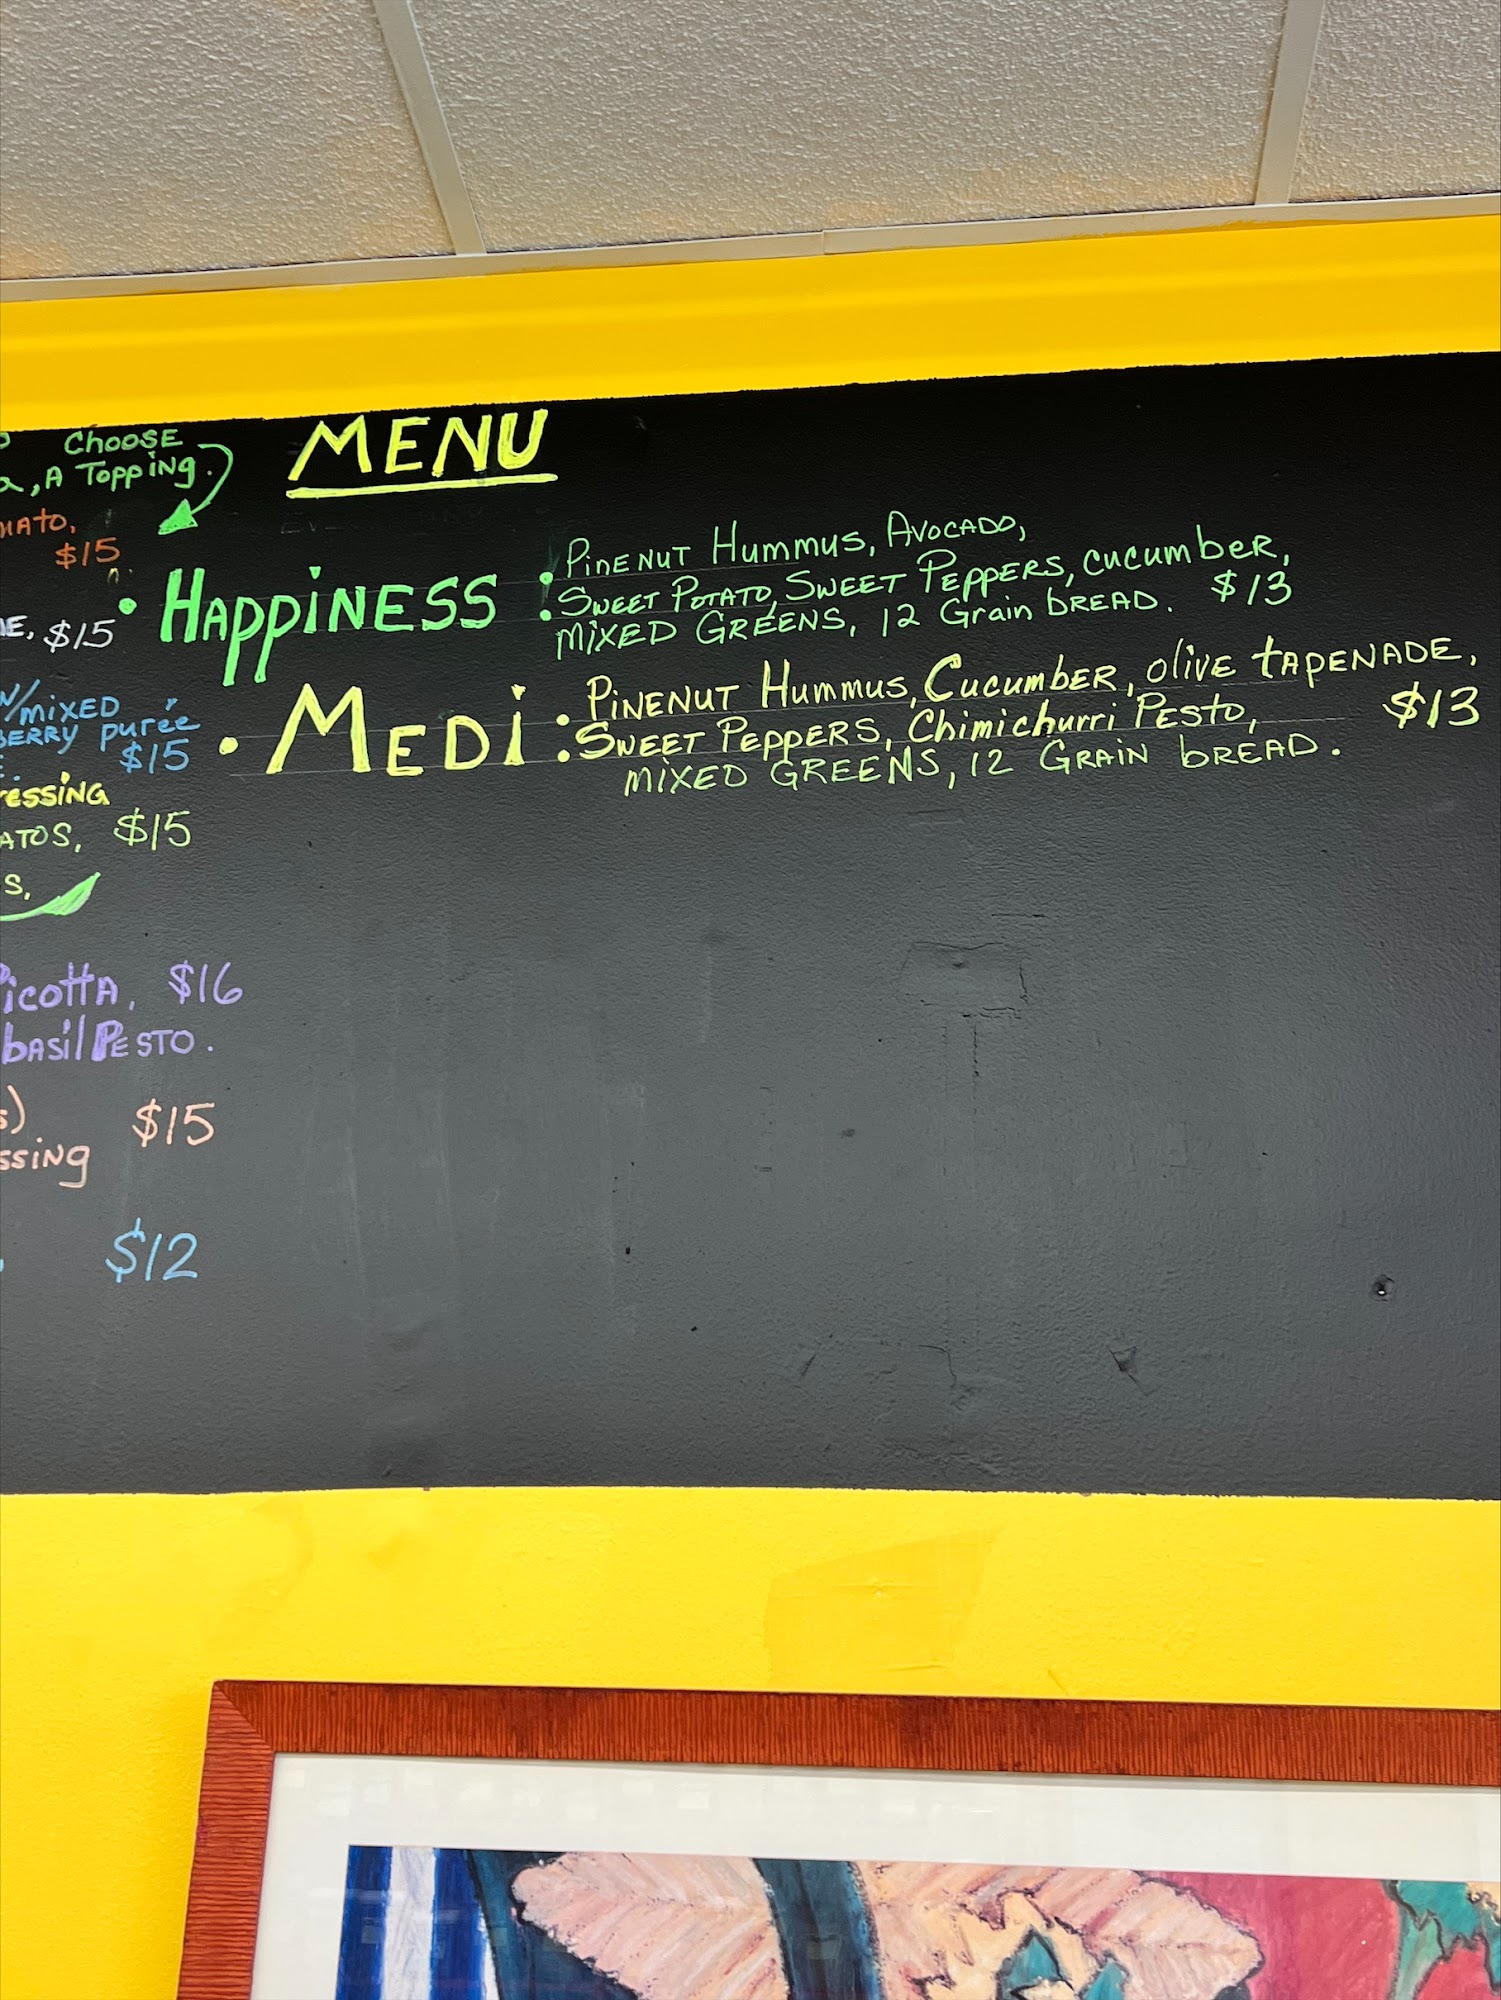 Choose
, A Topping.
$15
$15
W/MIXED
BERRY purée
$15
ATOS, $15
S,
Ricotta, $16
basil Pesto.
$15
$12
MENU
• Happiness : Pinenut Hummus, Avocado,
Sweet Potato, Sweet Peppers, cucumber,
Mixed Greens, 12 Grain bread. $13
• Medi : Pinenut Hummus, Cucumber, olive tapenade,
Sweet Peppers, Chimichurri Pesto, $13
Mixed Greens, 12 Grain bread.